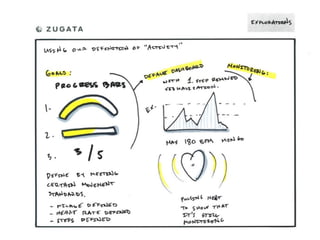 EXPLORATIONS
ZUGATA
USING OUR DEFINITION OF "ACTIVITY"
GOALS:
PROGRESS BARS
1.
2.
3. 3/5
DEFINE BY MEETING
CERTAIN MOVEMENT
STANDARDS.
- MILAGE DEFINED
- HEART RATE DEFINED
- STEPS DEFINED
DEFAULT DASHBOARD
WITH 1 STEP REMOVED
MONITORING:
EX.
MAX 180 BPM
TO SHOW THAT
IT'S STILL
MONITORING